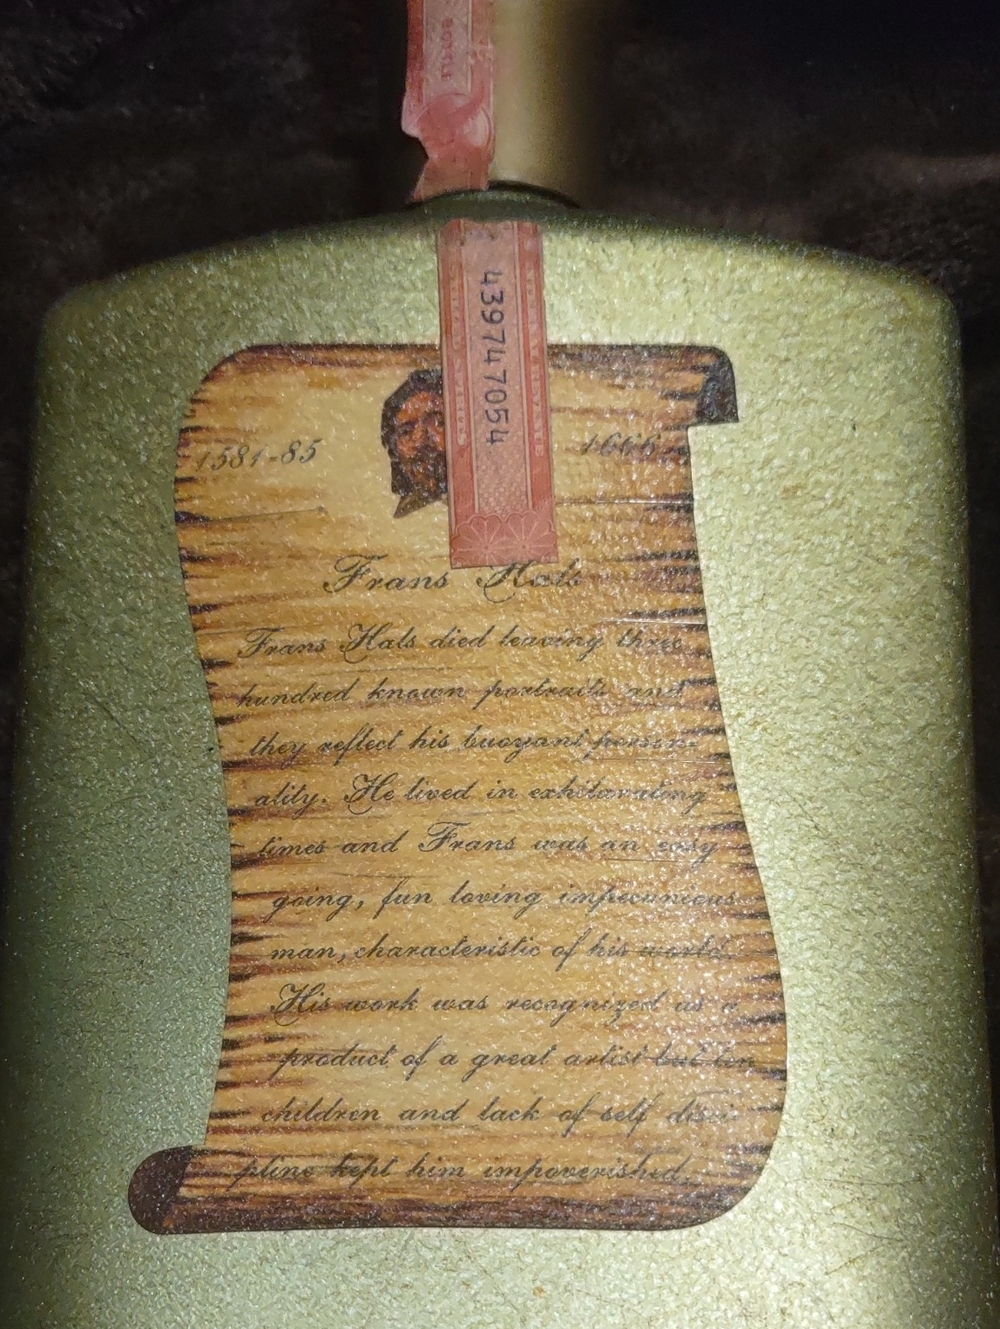 BOTTLE
439747054
1581-85
1666
Frans Hals
Frans Hals died leaving three
hundred known portraits and
they reflect his buoyant person-
ality. He lived in exhilarating
times and Frans was an easy
going, fun loving impecunious
man, characteristic of his world.
His work was recognized as a
product of a great artist but ten
children and lack of self disci-
pline kept him impoverished.